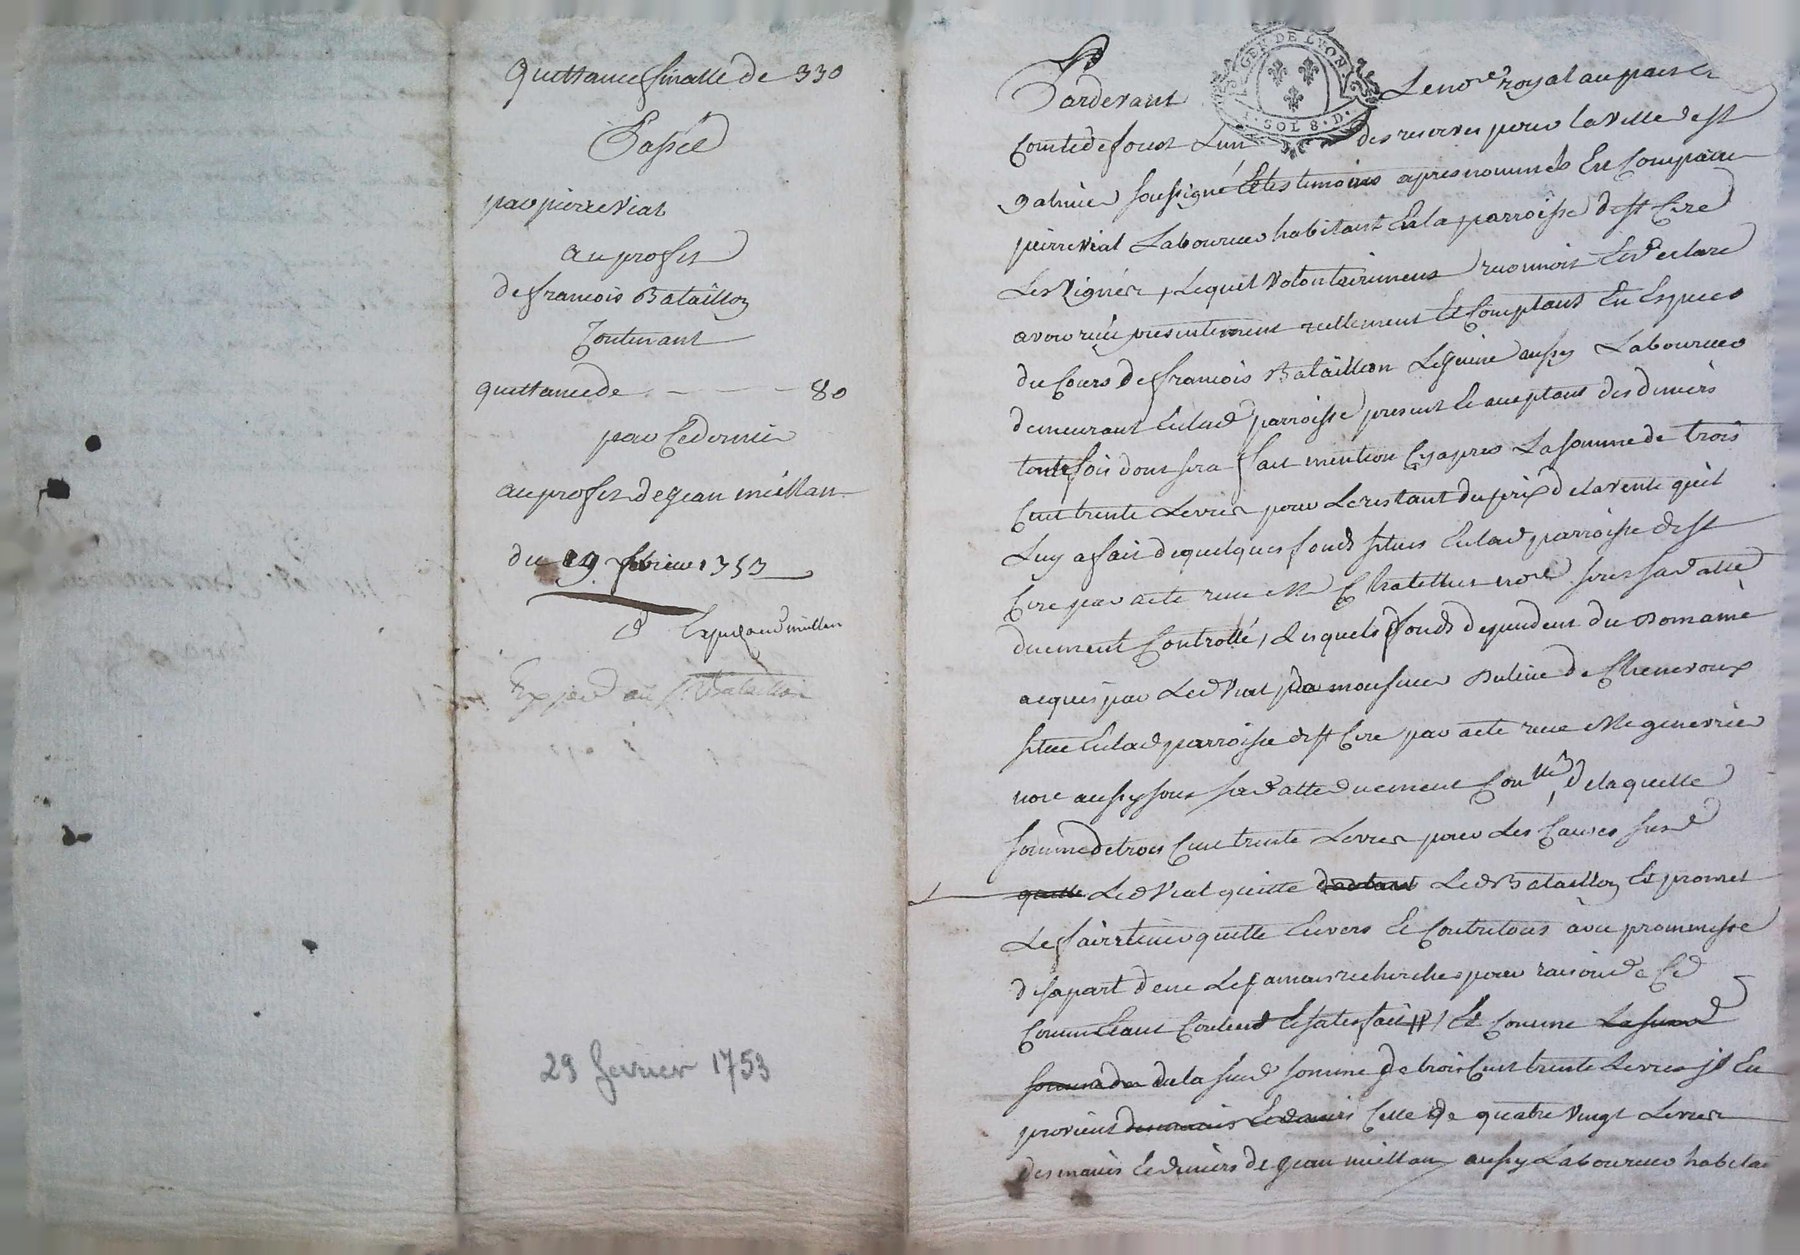 quittance finalle de 330
Passée
par pierre Vial
au profit
de francois Bataillon
Contenant
quittance de - - - - 80
par Ce dernier
au profit de jean miellan
du 19 fevrier 1753
Exp. jean miellan
Exped au Bataillon
29 fevrier 1753
GEN DE LYON
1 SOL 8 D.
Pardevant Le nore royal au pais et
Comté de forest Lun des reservés pour la ville de st
galmier soussigné Et les temoins apres nommés Est Comparu
pierre Vial Laboureur habitant En la parroisse de st Cire
Les Vignes, Lequel Volontairement reconnoit Et declare
avoir reçu presentement reellement Et Comptant En Especes
du Cours de francois Bataillon Le jeune aussy Laboureur
demeurant En lad parroisse present Et acceptant des deniers
toutefois dont sera fait mention Cy apres La somme de trois
Cent trente Livres pour Le restant du prix de la vente quil
Luy a fait de quelques fonds situés En lad parroisse de st
Cire par acte reçu Me Chatellus nore sous sa datte
duement Controllé, Lesquels fonds dependent du Domaine
acquis par Led Vial de monsieur Duline de Cheneroux
situé En lad parroisse de st Cire par acte reçu Me genevrier
nore aussy sous sa datte duement Conllé, de laquelle
somme de trois Cent trente Livres pour Les Causes susd
quitte Led Vial quitte Led Bataillon Et promet
Le faire tenir quitte Envers Et Contre tous avec prommesse
de sa part de ne Le jamais rechercher pour raison de Ce
Comme Etant Content Et satisfait // Et Comme La susd
somme de de la susd somme de trois Cent trente Livres jl En
provient des mains Et deniers Celle de quatre Vingt Livres
des mains Et deniers de jean miellan aussy Laboureur habitan